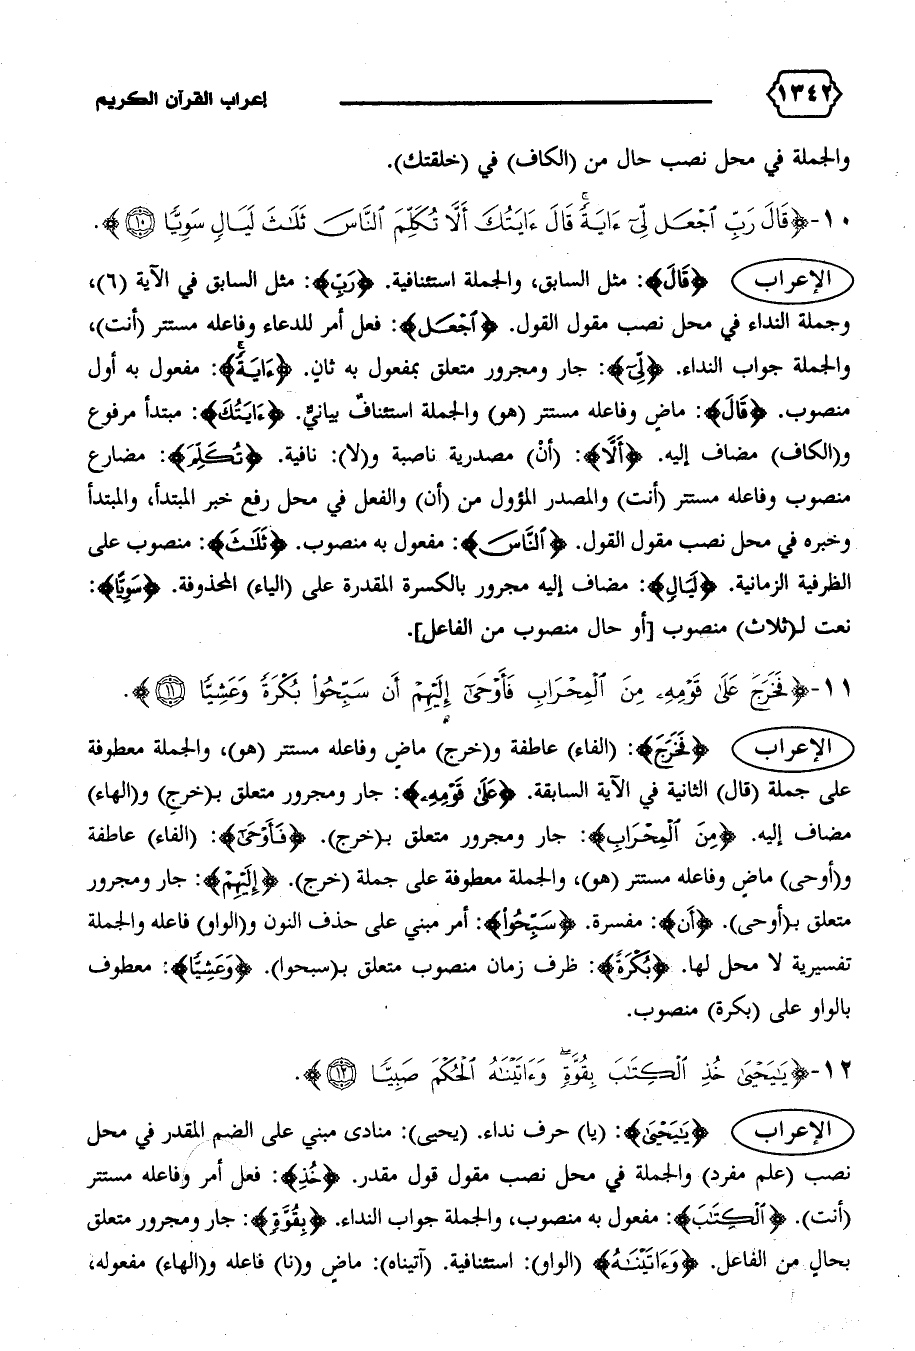 ١٣٤٢ إعراب القرآن الكريم
والجملة في محل نصب حال من (الكاف) في (خلقتك).
١٠-﴿قَالَ رَبِّ ٱجْعَل لِّىٓ ءَايَةً ۚ قَالَ ءَايَتُكَ أَلَّا تُكَلِّمَ ٱلنَّاسَ ثَلَٰثَ لَيَالٍ سَوِيًّا ١٠﴾.
الإعراب ﴿قَالَ﴾: مثل السابق، والجملة استئنافية. ﴿رَبِّ﴾: مثل السابق في الآية (٦)،
وجملة النداء في محل نصب مقول القول. ﴿ٱجْعَل﴾: فعل أمر للدعاء وفاعله مستتر (أنت)،
والجملة جواب النداء. ﴿لِّىٓ﴾: جار ومجرور متعلق بمفعول به ثانٍ. ﴿ءَايَةً ۚ﴾: مفعول به أول
منصوب. ﴿قَالَ﴾: ماضٍ وفاعله مستتر (هو) والجملة استئنافٌ بيانيٌّ. ﴿ءَايَتُكَ﴾: مبتدأ مرفوع
و(الكاف) مضاف إليه. ﴿أَلَّا﴾: (أنْ) مصدرية ناصبة و(لا): نافية. ﴿تُكَلِّمَ﴾: مضارع
منصوب وفاعله مستتر (أنت) والمصدر المؤول من (أن) والفعل في محل رفع خبر المبتدأ، والمبتدأ
وخبره في محل نصب مقول القول. ﴿ٱلنَّاسَ﴾: مفعول به منصوب. ﴿ثَلَٰثَ﴾: منصوب على
الظرفية الزمانية. ﴿لَيَالٍ﴾: مضاف إليه مجرور بالكسرة المقدرة على (الياء) المحذوفة. ﴿سَوِيًّا﴾:
نعت لـ(ثلاث) منصوب [أو حال منصوب من الفاعل].
١١-﴿فَخَرَجَ عَلَىٰ قَوْمِهِۦ مِنَ ٱلْمِحْرَابِ فَأَوْحَىٰٓ إِلَيْهِمْ أَن سَبِّحُوا۟ بُكْرَةً وَعَشِيًّا ١١﴾.
الإعراب ﴿فَخَرَجَ﴾: (الفاء) عاطفة و(خرج) ماضٍ وفاعله مستتر (هو)، والجملة معطوفة
على جملة (قال) الثانية في الآية السابقة. ﴿عَلَىٰ قَوْمِهِۦ﴾: جار ومجرور متعلق بـ(خرج) و(الهاء)
مضاف إليه. ﴿مِنَ ٱلْمِحْرَابِ﴾: جار ومجرور متعلق بـ(خرج). ﴿فَأَوْحَىٰٓ﴾: (الفاء) عاطفة
و(أوحى) ماضٍ وفاعله مستتر (هو)، والجملة معطوفة على جملة (خرج). ﴿إِلَيْهِمْ﴾: جار ومجرور
متعلق بـ(أوحى). ﴿أَن﴾: مفسرة. ﴿سَبِّحُوا۟﴾: أمر مبني على حذف النون و(الواو) فاعله والجملة
تفسيرية لا محل لها. ﴿بُكْرَةً﴾: ظرف زمان منصوب متعلق بـ(سبحوا). ﴿وَعَشِيًّا﴾: معطوف
بالواو على (بكرة) منصوب.
١٢-﴿يَٰيَحْيَىٰ خُذِ ٱلْكِتَٰبَ بِقُوَّةٍ ۖ وَءَاتَيْنَٰهُ ٱلْحُكْمَ صَبِيًّا ١٢﴾.
الإعراب ﴿يَٰيَحْيَىٰ﴾: (يا) حرف نداء. (يحيى): منادى مبني على الضم المقدر في محل
نصب (علم مفرد) والجملة في محل نصب مقول قول مقدر. ﴿خُذِ﴾: فعل أمر وفاعله مستتر
(أنت). ﴿ٱلْكِتَٰبَ﴾: مفعول به منصوب، والجملة جواب النداء. ﴿بِقُوَّةٍ﴾: جار ومجرور متعلق
بحالٍ من الفاعل. ﴿وَءَاتَيْنَٰهُ﴾ (الواو): استئنافية. (آتيناه): ماضٍ و(نا) فاعله و(الهاء) مفعوله،